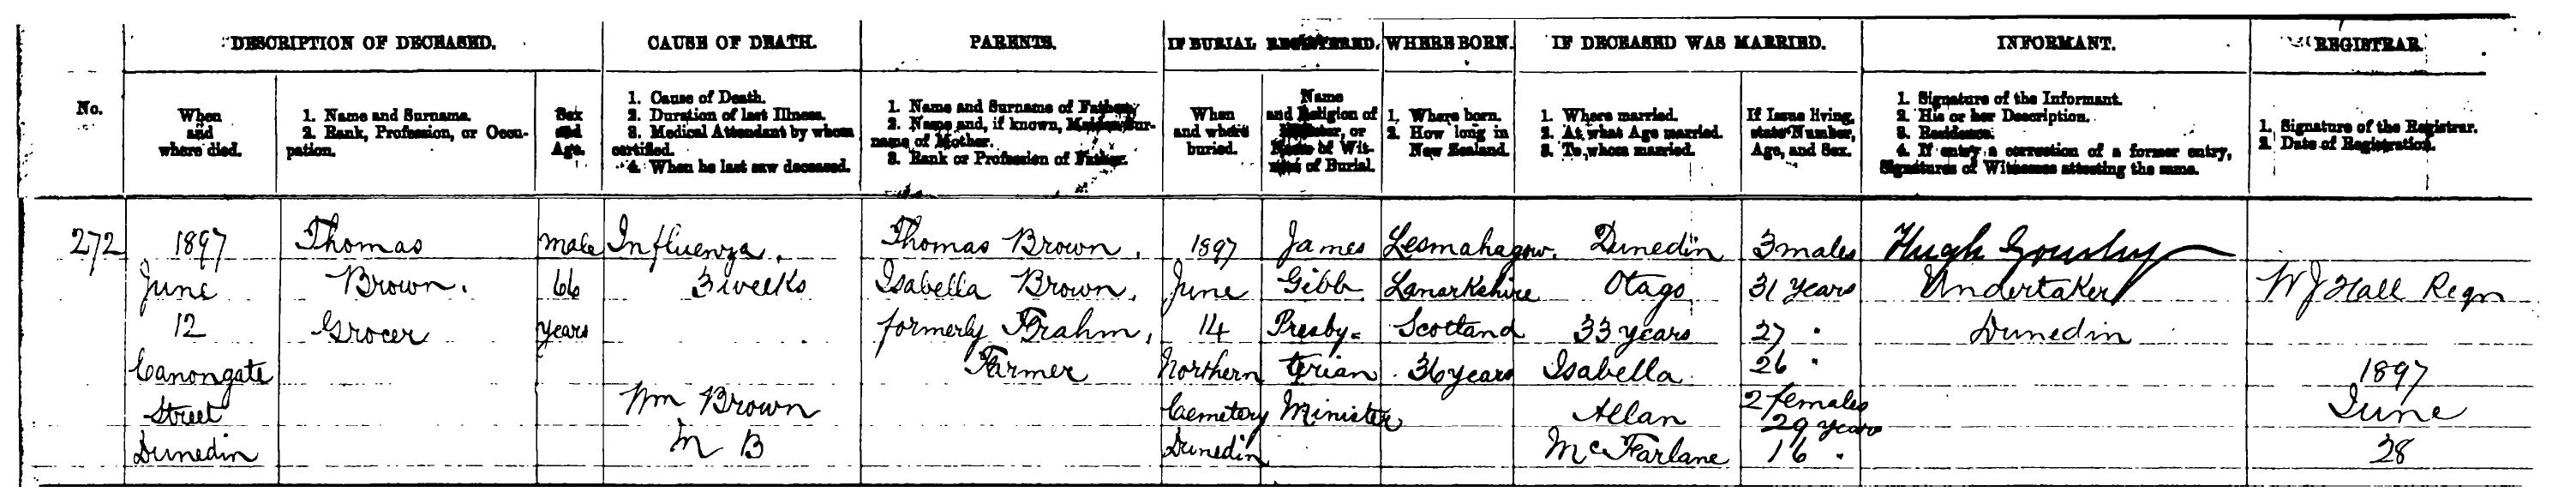 DESCRIPTION OF DECEASED. CAUSE OF DEATH. PARENTS. IF BURIAL REGISTERED. WHERE BORN. IF DECEASED WAS MARRIED. INFORMANT. REGISTRAR.
No.
When
and
where died.
1. Name and Surname.
2. Rank, Profession, or Occu-
pation.
Sex
and
Age.
1. Cause of Death.
2. Duration of last Illness.
3. Medical Attendant by whom
certified.
4. When he last saw deceased.
1. Name and Surname of Father.
2. Name and, if known, Maiden Sur-
name of Mother.
3. Rank or Profession of Father.
When
and where
buried.
Name
and Religion of
Minister, or
Name of Wit-
ness of Burial.
1. Where born.
2. How long in
New Zealand.
1. Where married.
2. At what Age married.
3. To whom married.
If Issue living,
state Number,
Age, and Sex.
1. Signature of the Informant.
2. His or her Description.
3. Residence.
4. If entry a correction of a former entry,
Signatures of Witnesses attesting the same.
1. Signature of the Registrar.
2. Date of Registration.
272
1897
June
12
Canongate
Street
Dunedin
Thomas
Brown.
Grocer
male
66
years
Influenza.
3 weeks
Wm Brown
M B
Thomas Brown.
Isabella Brown.
formerly Frahm.
Farmer
1897
June
14
Northern
Cemetery
Dunedin
James
Gibb
Presby=
terian
Minister
Lesmahagow.
Lanarkshire
Scotland
36 years
Dunedin
Otago
33 years
Isabella
Allan
McFarlane
3 males
31 years
27 "
26 "
2 females
29 years
16 "
Hugh Gourley
Undertaker
Dunedin
W J Hall Regr
1897
June
28